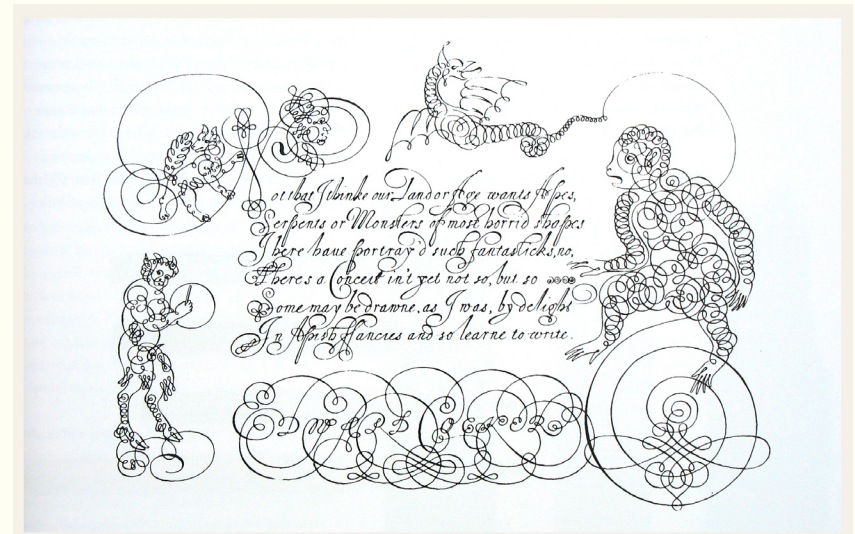 Not that I thinke our Land or Age wants Apes,
Serpents or Monsters of most horrid shapes
I here have portray'd such fantasticks, no,
Theres a Conceit in't yet not so, but so
Some may be drawne, as I was, by delight
In Apish ffancies and so learne to write.